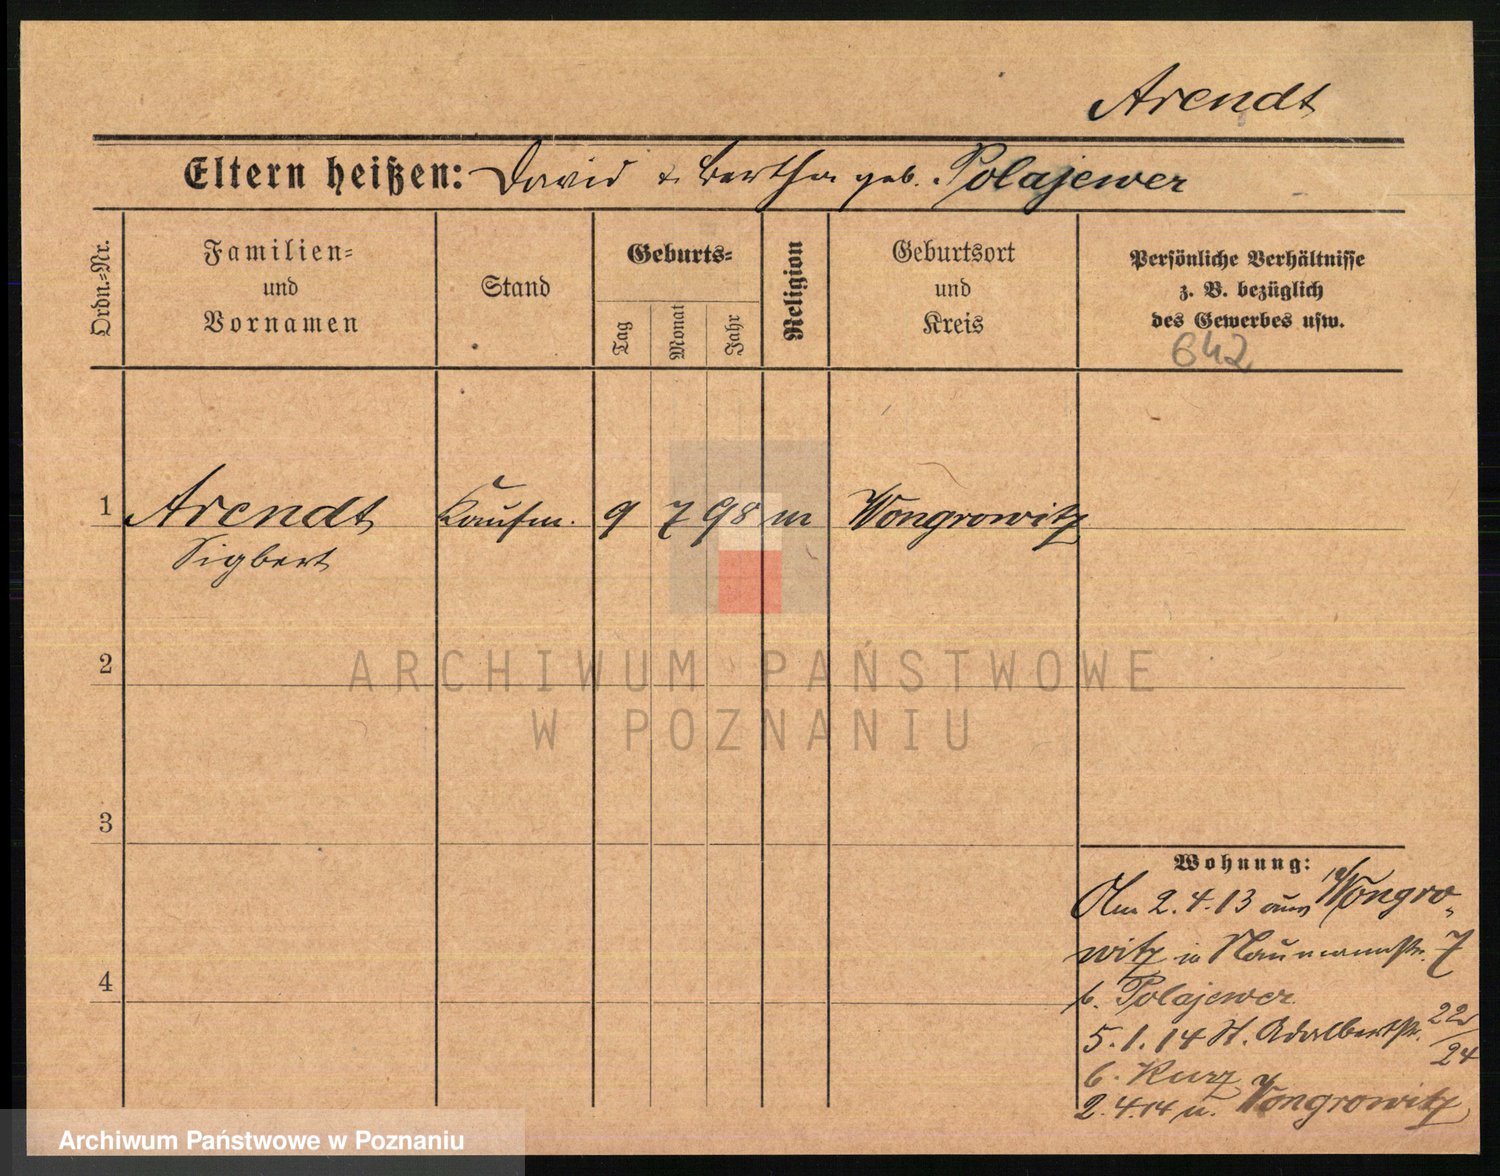 Arendt
Eltern heißen: David & Bertha geb. Polajewer
Ordn.-Nr.
Familien-
und
Vornamen
Stand
Geburts-
Tag
Monat
Jahr
Religion
Geburtsort
und
Kreis
Persönliche Verhältnisse
z. B. bezüglich
des Gewerbes usw.
642
1 Arendt Kaufm. 9 7 98 m Wongrowitz
Sigbert
2
ARCHIWUM PAŃSTWOWE
W POZNANIU
3
4
Wohnung:
Am 2.4.13 aus Wongro-
witz in Naumannstr. 7
b. Polajewer
5.1.14 St. Adalbertstr. 22/24
b. Kurz
2.4.14 n. Wongrowitz
Archiwum Państwowe w Poznaniu